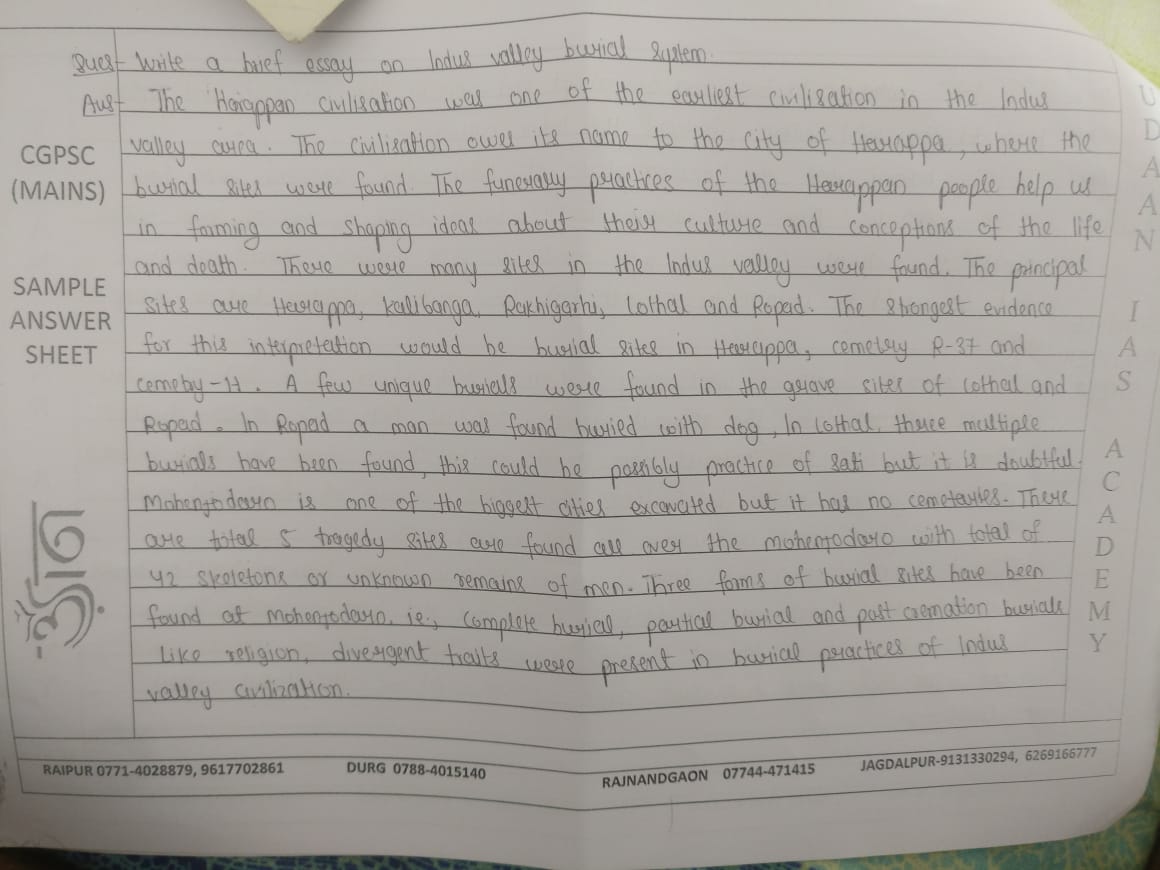 Ques- Write a brief essay on Indus valley burial system.
Ans- The Harappan civilisation was one of the earliest civilisation in the Indus
valley area. The civilisation owes its name to the city of Harappa, where the
burial sites were found. The funerary practices of the Harappan people help us
in forming and shaping ideas about their culture and conceptions of the life
and death. There were many sites in the Indus valley were found. The principal
sites are Harappa, Kalibanga, Rakhigarhi, Lothal and Ropad. The strongest evidence
for this interpretation would be burial sites in Harappa, cemetry R-37 and
cemeby-H. A few unique burials were found in the grave sites of Lothal and
Ropad. In Ropad a man was found buried with dog, In Lothal, three multiple
burials have been found, this could be possibly practice of Sati but it is doubtful.
Mohenjodaro is one of the biggest cities excavated but it has no cemetaries. There
are total 5 tragedy sites are found all over the mohenjodaro with total of
42 skeletons or unknown remains of men. Three forms of burial sites have been
found at mohenjodaro, ie., complete burial, partial burial and post cremation burials
Like religion, divergent traits were present in burial practices of Indus
valley civilization.
CGPSC
(MAINS)
SAMPLE
ANSWER
SHEET
उड़ान
UDAAN IAS ACADEMY
RAIPUR 0771-4028879, 9617702861 DURG 0788-4015140 RAJNANDGAON 07744-471415 JAGDALPUR-9131330294, 6269166777